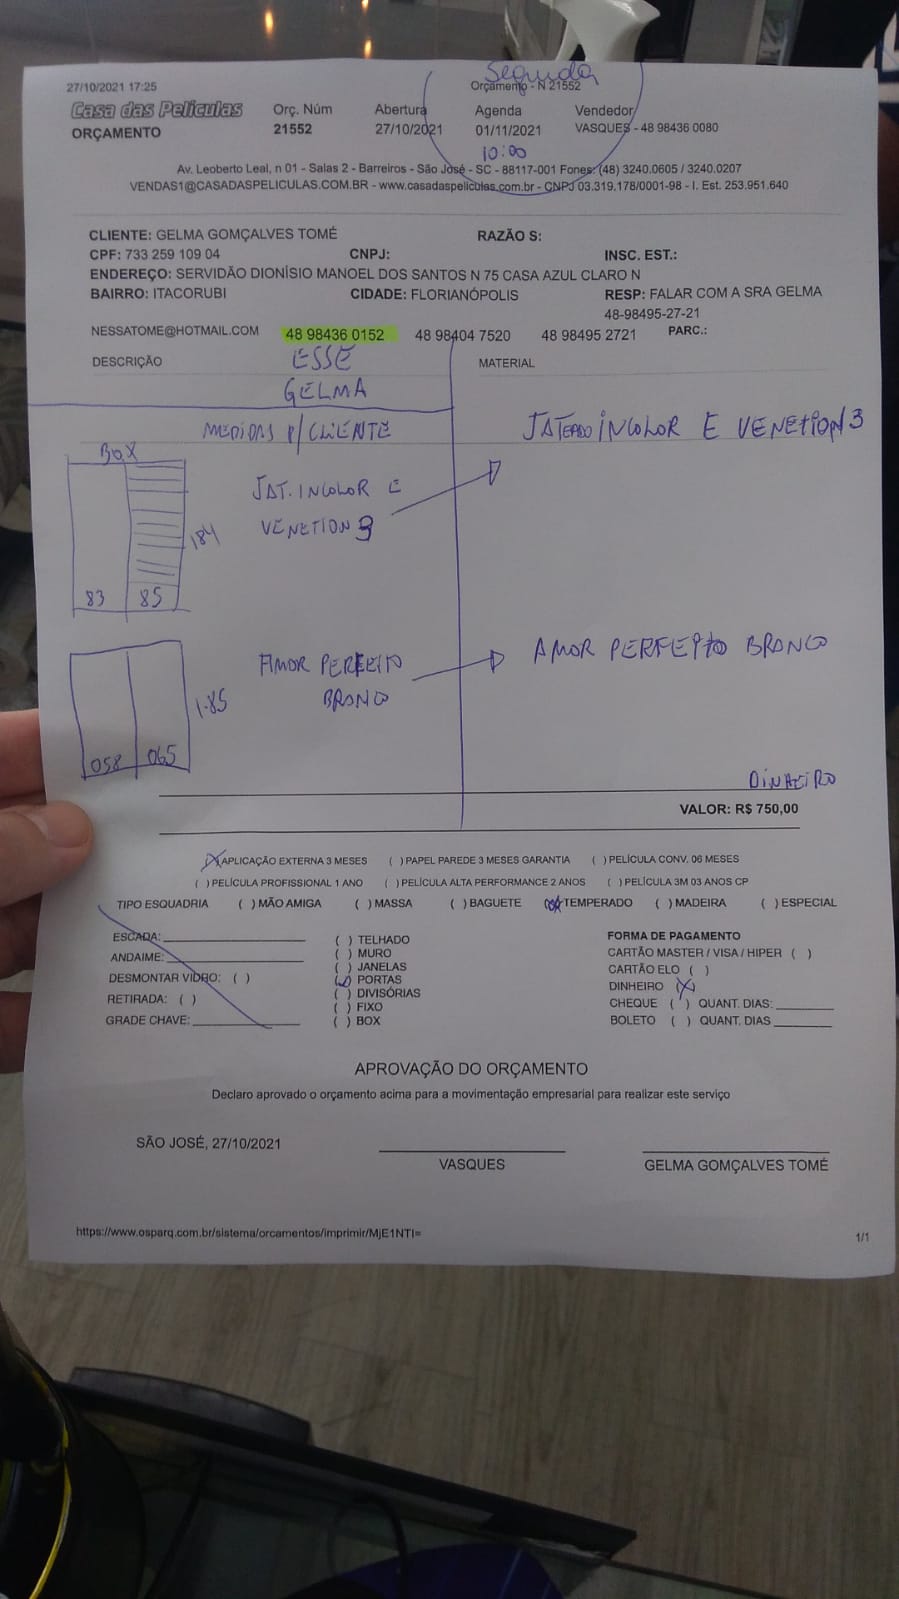 Segunda
27/10/2021 17:25 Orçamento - N 21552
Casa das Películas Orç. Núm Abertura Agenda Vendedor
ORÇAMENTO 21552 27/10/2021 01/11/2021 VASQUES - 48 98436 0080
10:00
Av. Leoberto Leal, n 01 - Salas 2 - Barreiros - São José - SC - 88117-001 Fones: (48) 3240.0605 / 3240.0207
VENDAS1@CASADASPELICULAS.COM.BR - www.casadaspeliculas.com.br - CNPJ 03.319.178/0001-98 - I. Est. 253.951.640
CLIENTE: GELMA GOMÇALVES TOMÉ RAZÃO S:
CPF: 733 259 109 04 CNPJ: INSC. EST.:
ENDEREÇO: SERVIDÃO DIONÍSIO MANOEL DOS SANTOS N 75 CASA AZUL CLARO N
BAIRRO: ITACORUBI CIDADE: FLORIANÓPOLIS RESP: FALAR COM A SRA GELMA
48-98495-27-21
NESSATOME@HOTMAIL.COM 48 98436 0152 48 98404 7520 48 98495 2721 PARC.:
DESCRIÇÃO ESSE MATERIAL
GELMA
MEDIDAS P/ CLIENTE JATEADO INCOLOR E VENETION 3
BOX
JAT. INCOLOR E
VENETION 3
184
83 85
AMOR PERFEITO AMOR PERFEITO BRANCO
BRANCO
1.85
058 065
DINHEIRO
VALOR: R$ 750,00
(X) APLICAÇÃO EXTERNA 3 MESES ( ) PAPEL PAREDE 3 MESES GARANTIA ( ) PELÍCULA CONV. 06 MESES
( ) PELÍCULA PROFISSIONAL 1 ANO ( ) PELÍCULA ALTA PERFORMANCE 2 ANOS ( ) PELÍCULA 3M 03 ANOS CP
TIPO ESQUADRIA ( ) MÃO AMIGA ( ) MASSA ( ) BAGUETE (X) TEMPERADO ( ) MADEIRA ( ) ESPECIAL
ESCADA: ____ ( ) TELHADO FORMA DE PAGAMENTO
ANDAIME: ____ ( ) MURO CARTÃO MASTER / VISA / HIPER ( )
( ) JANELAS CARTÃO ELO ( )
DESMONTAR VIDRO: ( ) (✓) PORTAS DINHEIRO (X)
RETIRADA: ( ) ( ) DIVISÓRIAS CHEQUE ( ) QUANT. DIAS: ____
( ) FIXO
GRADE CHAVE: ____ ( ) BOX BOLETO ( ) QUANT. DIAS ____
APROVAÇÃO DO ORÇAMENTO
Declaro aprovado o orçamento acima para a movimentação empresarial para realizar este serviço
SÃO JOSÉ, 27/10/2021
VASQUES GELMA GOMÇALVES TOMÉ
https://www.osparq.com.br/sistema/orcamentos/imprimir/MjE1NTI= 1/1